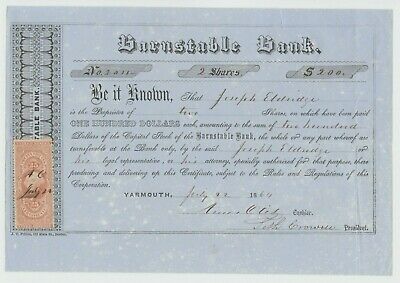 Barnstable Bank.
No. 2011 2 Shares, $200.
Be it Known, That Joseph Eldridge
is the Proprietor of two Share, on which have been paid
ONE HUNDRED DOLLARS each amounting to the sum of two hundred
Dollars of the Capital Stock of the Barnstable Bank, the whole or any part whereof are
transferable at the Bank only, by the said Joseph Eldridge or
his legal representative, or his attorney, specially authorized for that purpose, there
producing and delivering up this Certificate, subject to the Rules and Regulations of this
Corporation.
YARMOUTH, July 22 1864
Amos Otis Cashier.
Seth Crowell President.
TABLE BANK.
A O
July 22